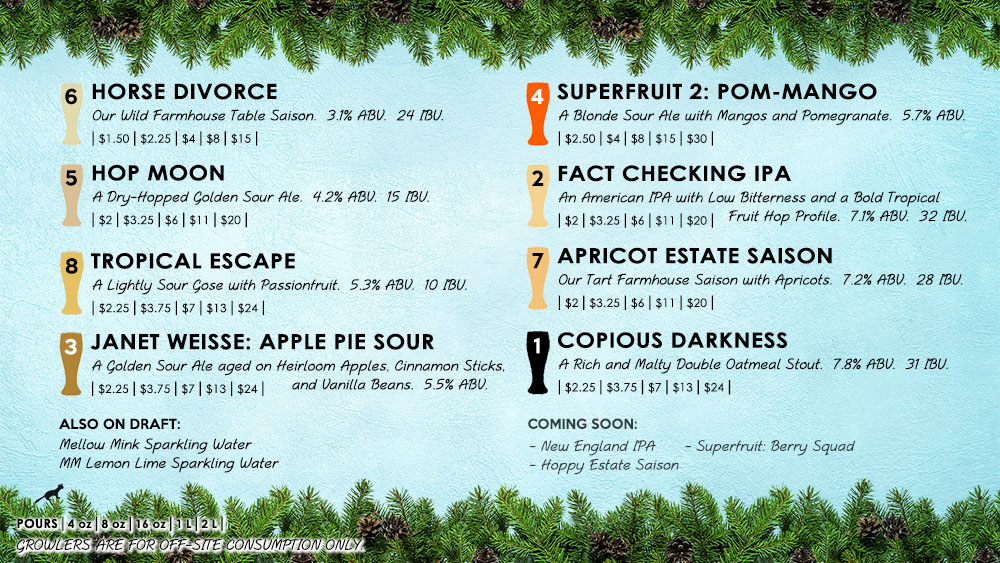 6 HORSE DIVORCE
Our Wild Farmhouse Table Saison. 3.1% ABV. 24 IBU.
| $1.50 | $2.25 | $4 | $8 | $15 |
5 HOP MOON
A Dry-Hopped Golden Sour Ale. 4.2% ABV. 15 IBU.
| $2 | $3.25 | $6 | $11 | $20 |
8 TROPICAL ESCAPE
A Lightly Sour Gose with Passionfruit. 5.3% ABV. 10 IBU.
| $2.25 | $3.75 | $7 | $13 | $24 |
3 JANET WEISSE: APPLE PIE SOUR
A Golden Sour Ale aged on Heirloom Apples, Cinnamon Sticks,
| $2.25 | $3.75 | $7 | $13 | $24 | and Vanilla Beans. 5.5% ABV.
ALSO ON DRAFT:
Mellow Mink Sparkling Water
MM Lemon Lime Sparkling Water
4 SUPERFRUIT 2: POM-MANGO
A Blonde Sour Ale with Mangos and Pomegranate. 5.7% ABV.
| $2.50 | $4 | $8 | $15 | $30 |
2 FACT CHECKING IPA
An American IPA with Low Bitterness and a Bold Tropical
| $2 | $3.25 | $6 | $11 | $20 | Fruit Hop Profile. 7.1% ABV. 32 IBU.
7 APRICOT ESTATE SAISON
Our Tart Farmhouse Saison with Apricots. 7.2% ABV. 28 IBU.
| $2 | $3.25 | $6 | $11 | $20 |
1 COPIOUS DARKNESS
A Rich and Malty Double Oatmeal Stout. 7.8% ABV. 31 IBU.
| $2.25 | $3.75 | $7 | $13 | $24 |
COMING SOON:
- New England IPA - Superfruit: Berry Squad
- Hoppy Estate Saison
POURS | 4 oz | 8 oz | 16 oz | 1 L | 2 L |
GROWLERS ARE FOR OFF-SITE CONSUMPTION ONLY.